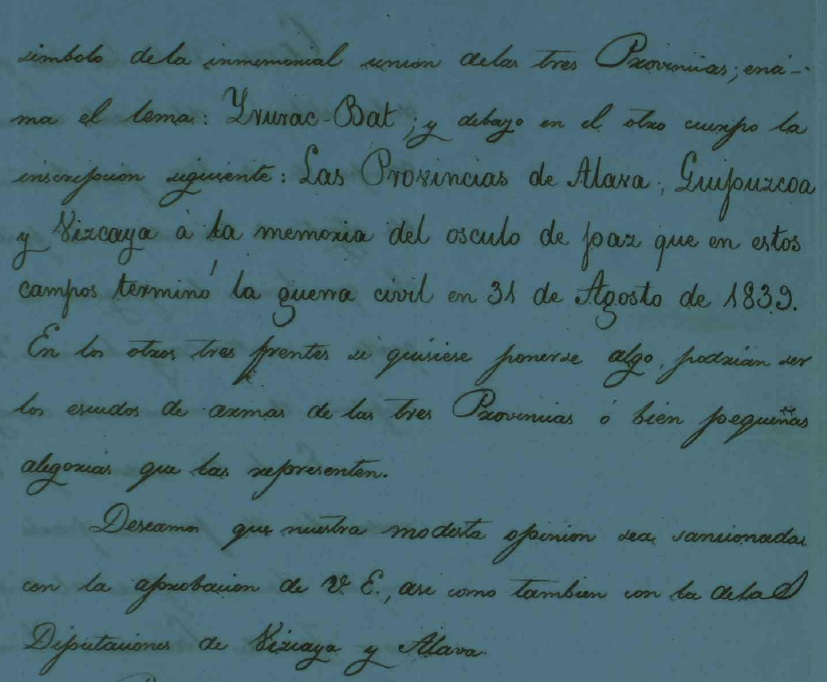 simbolo dela inmemorial union delas tres Provincias; enci-
ma el lema: Yrurac-Bat; y debajo en el otro cuerpo la
inscripcion siguiente: Las Provincias de Alava, Guipuzcoa
y Vizcaya á la memoria del osculo de paz que en estos
campos terminó la guerra civil en 31 de Agosto de 1839.
En los otros tres frentes si quisiese ponerse algo, podrian ser
los escudos de armas de las tres Provincias ó bien pequeñas
alegorias que las representen.
Deseamos que nuestra modesta opinion sea sancionada
con la aprobacion de V. E., asi como tambien con la delas
Diputaciones de Vizcaya y Alava.